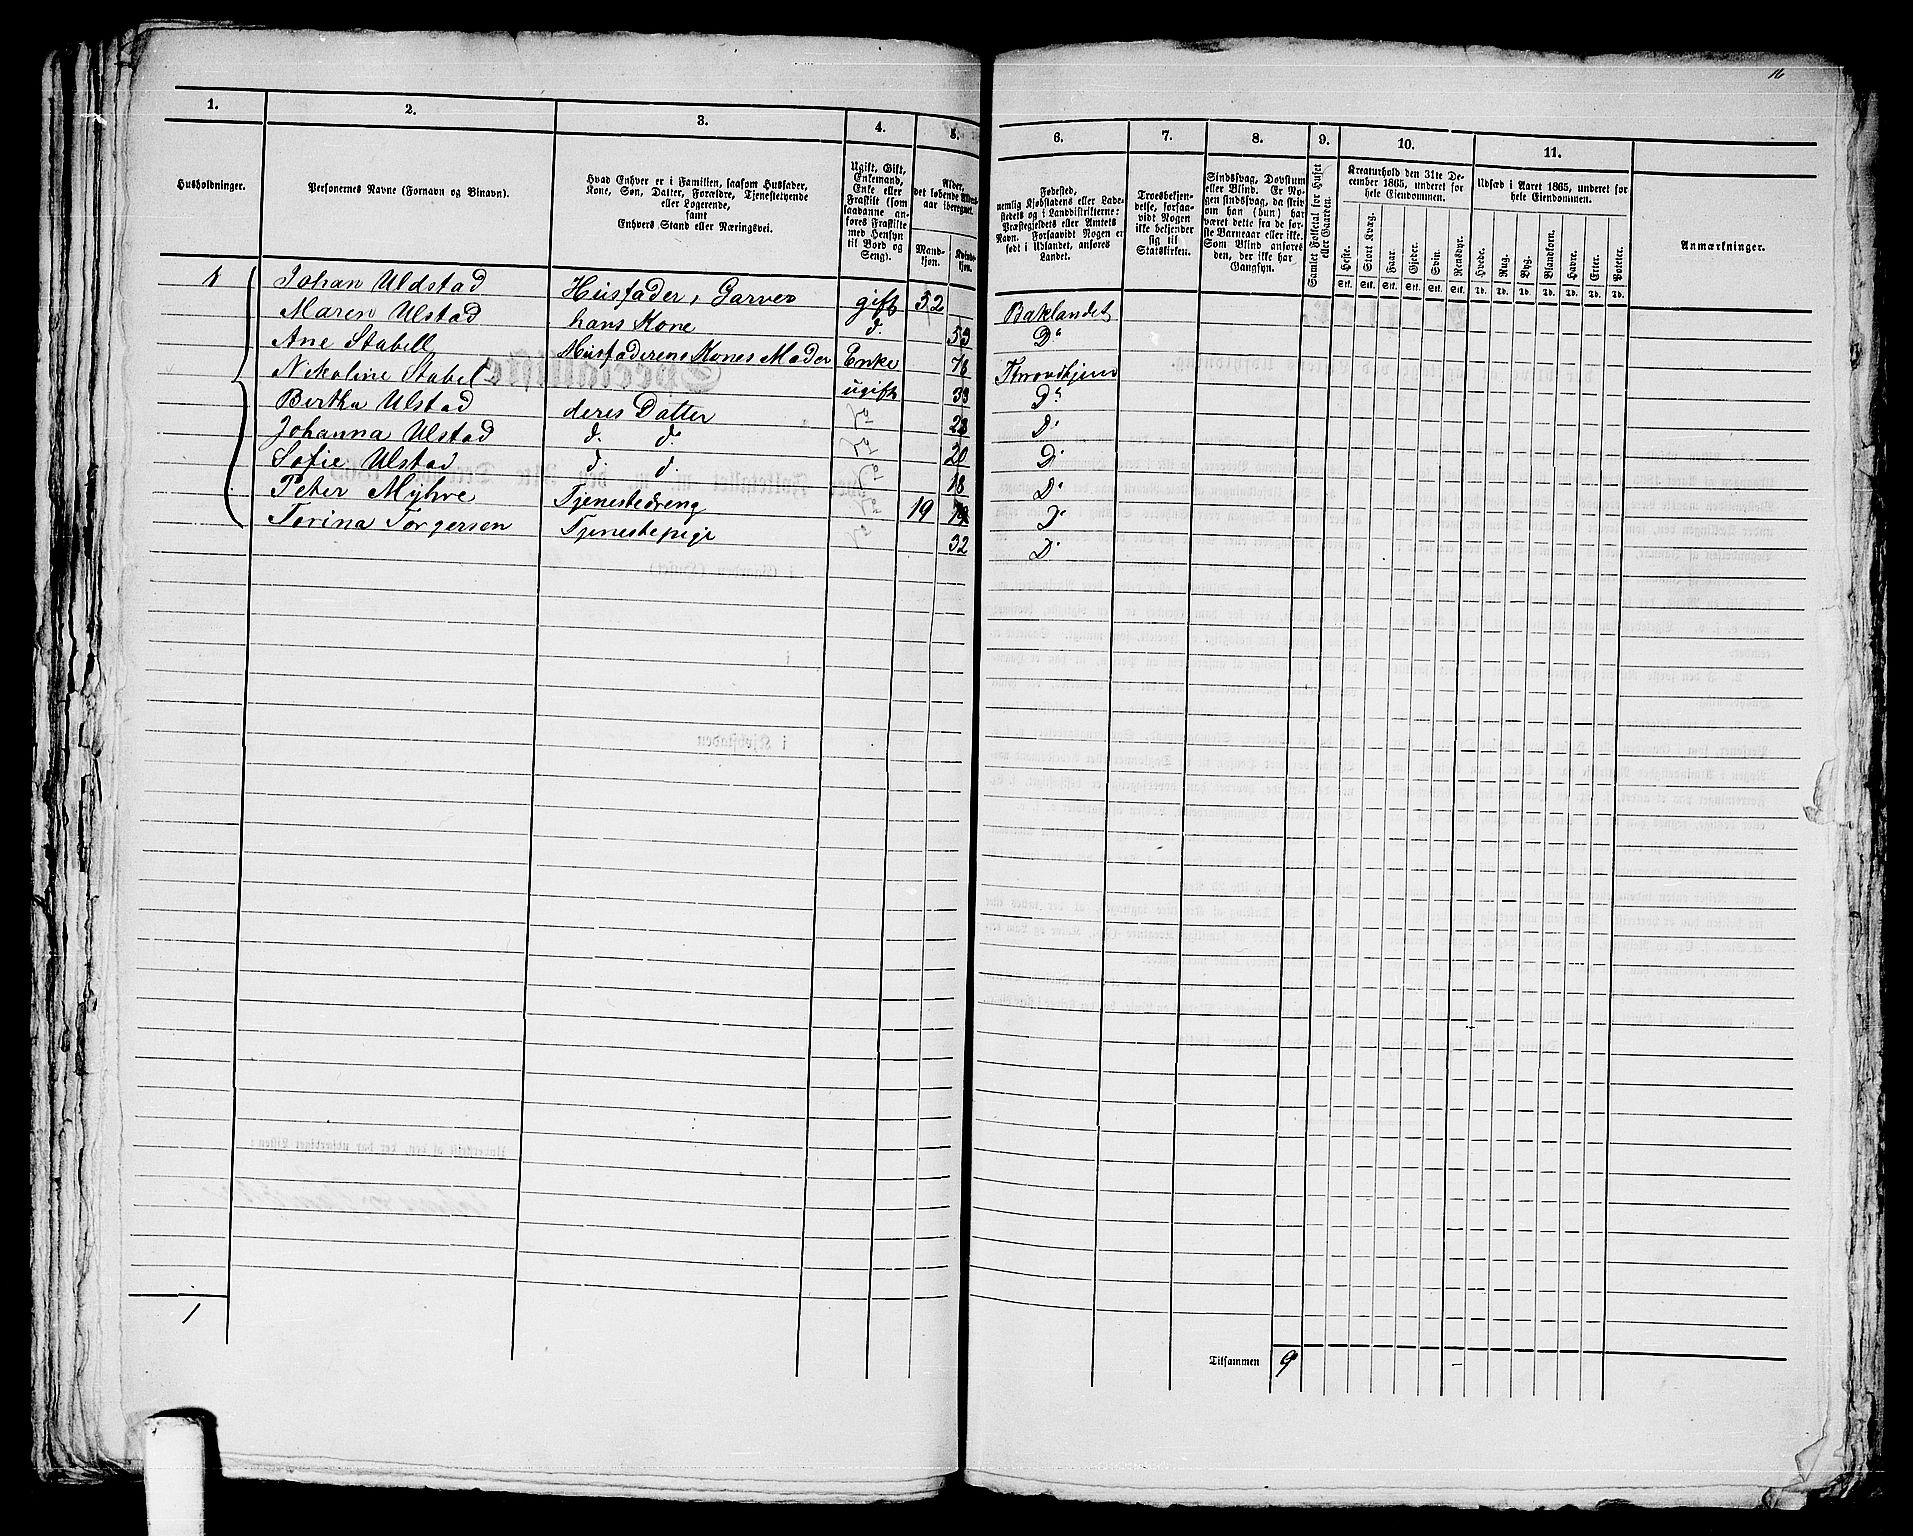 16
1. 2. 3. 4. 5. 6. 7. 8. 9. 10. 11.
Husholdninger.
Personernes Navne (Fornavn og Binavn).
Hvad Enhver er i Familien, saasom Husfader,
Kone, Søn, Datter, Forældre, Tjenestetyende
eller Logerende,
samt
Enhvers Stand eller Næringsvei.
Ugift, Gift,
Enkemand,
Enke eller
Fraskilt (som
saadanne an-
føres Fraskilte
med Hensyn
til Bord og
Seng).
Alder,
det løbende Alders-
aar iberegnet.
Mand-
kjøn.
Kvinde-
kjøn.
Fødested,
nemlig Kjøbstadens eller Lade-
stedets og i Landdistrikterne:
Præstegjeldets eller Amtets
Navn. Forsaavidt Nogen er
født i Udlandet, anføres
Landet.
Troesbekjen-
delse, forsaa-
vidt Nogen
ikke bekjender
sig til
Statskirken.
Sindssvag, Døvstum
eller Blind. Er No-
gen sindssvag, da skriv
om han (hun) har
været dette fra de før-
ste Barneaar eller ikke.
Som Blind anføres
den, der ikke har
Gangsyn.
Samlet Folketal for Huset
eller Gaarden.
Kreaturhold den 31te De-
cember 1865, underet for
hele Eiendommen.
Heste. Stort Kvæg. Faar. Gjeder. Svin. Rensdyr.
Stk. Stk. Stk. Stk. Stk. Stk.
Udsæd i Aaret 1865, underet for
hele Eiendommen.
Hvede. Rug. Byg. Blandkorn. Havre. Erter. Poteter.
Td. Td. Td. Td. Td. Td. Td.
Anmærkninger.
1 Johan Uldstad Husfader, Garver gift 52 Baklandet
Maren Ulstad hans Kone d. 53 Do
Ane Stabell Husfaderens Kones Moder Enke 78 Throndhjem
Nikoline Stabel ugift 33 Do
Birtha Ulstad deres Datter 23 Do
Johanna Ulstad d. d. 20 Do
Sofie Ulstad d. d. 18 Do
Peter Myhre Tjenestedreng 19 19 Do
Torina Torgersen Tjenestepige 32 Do
1
Tilsammen 9